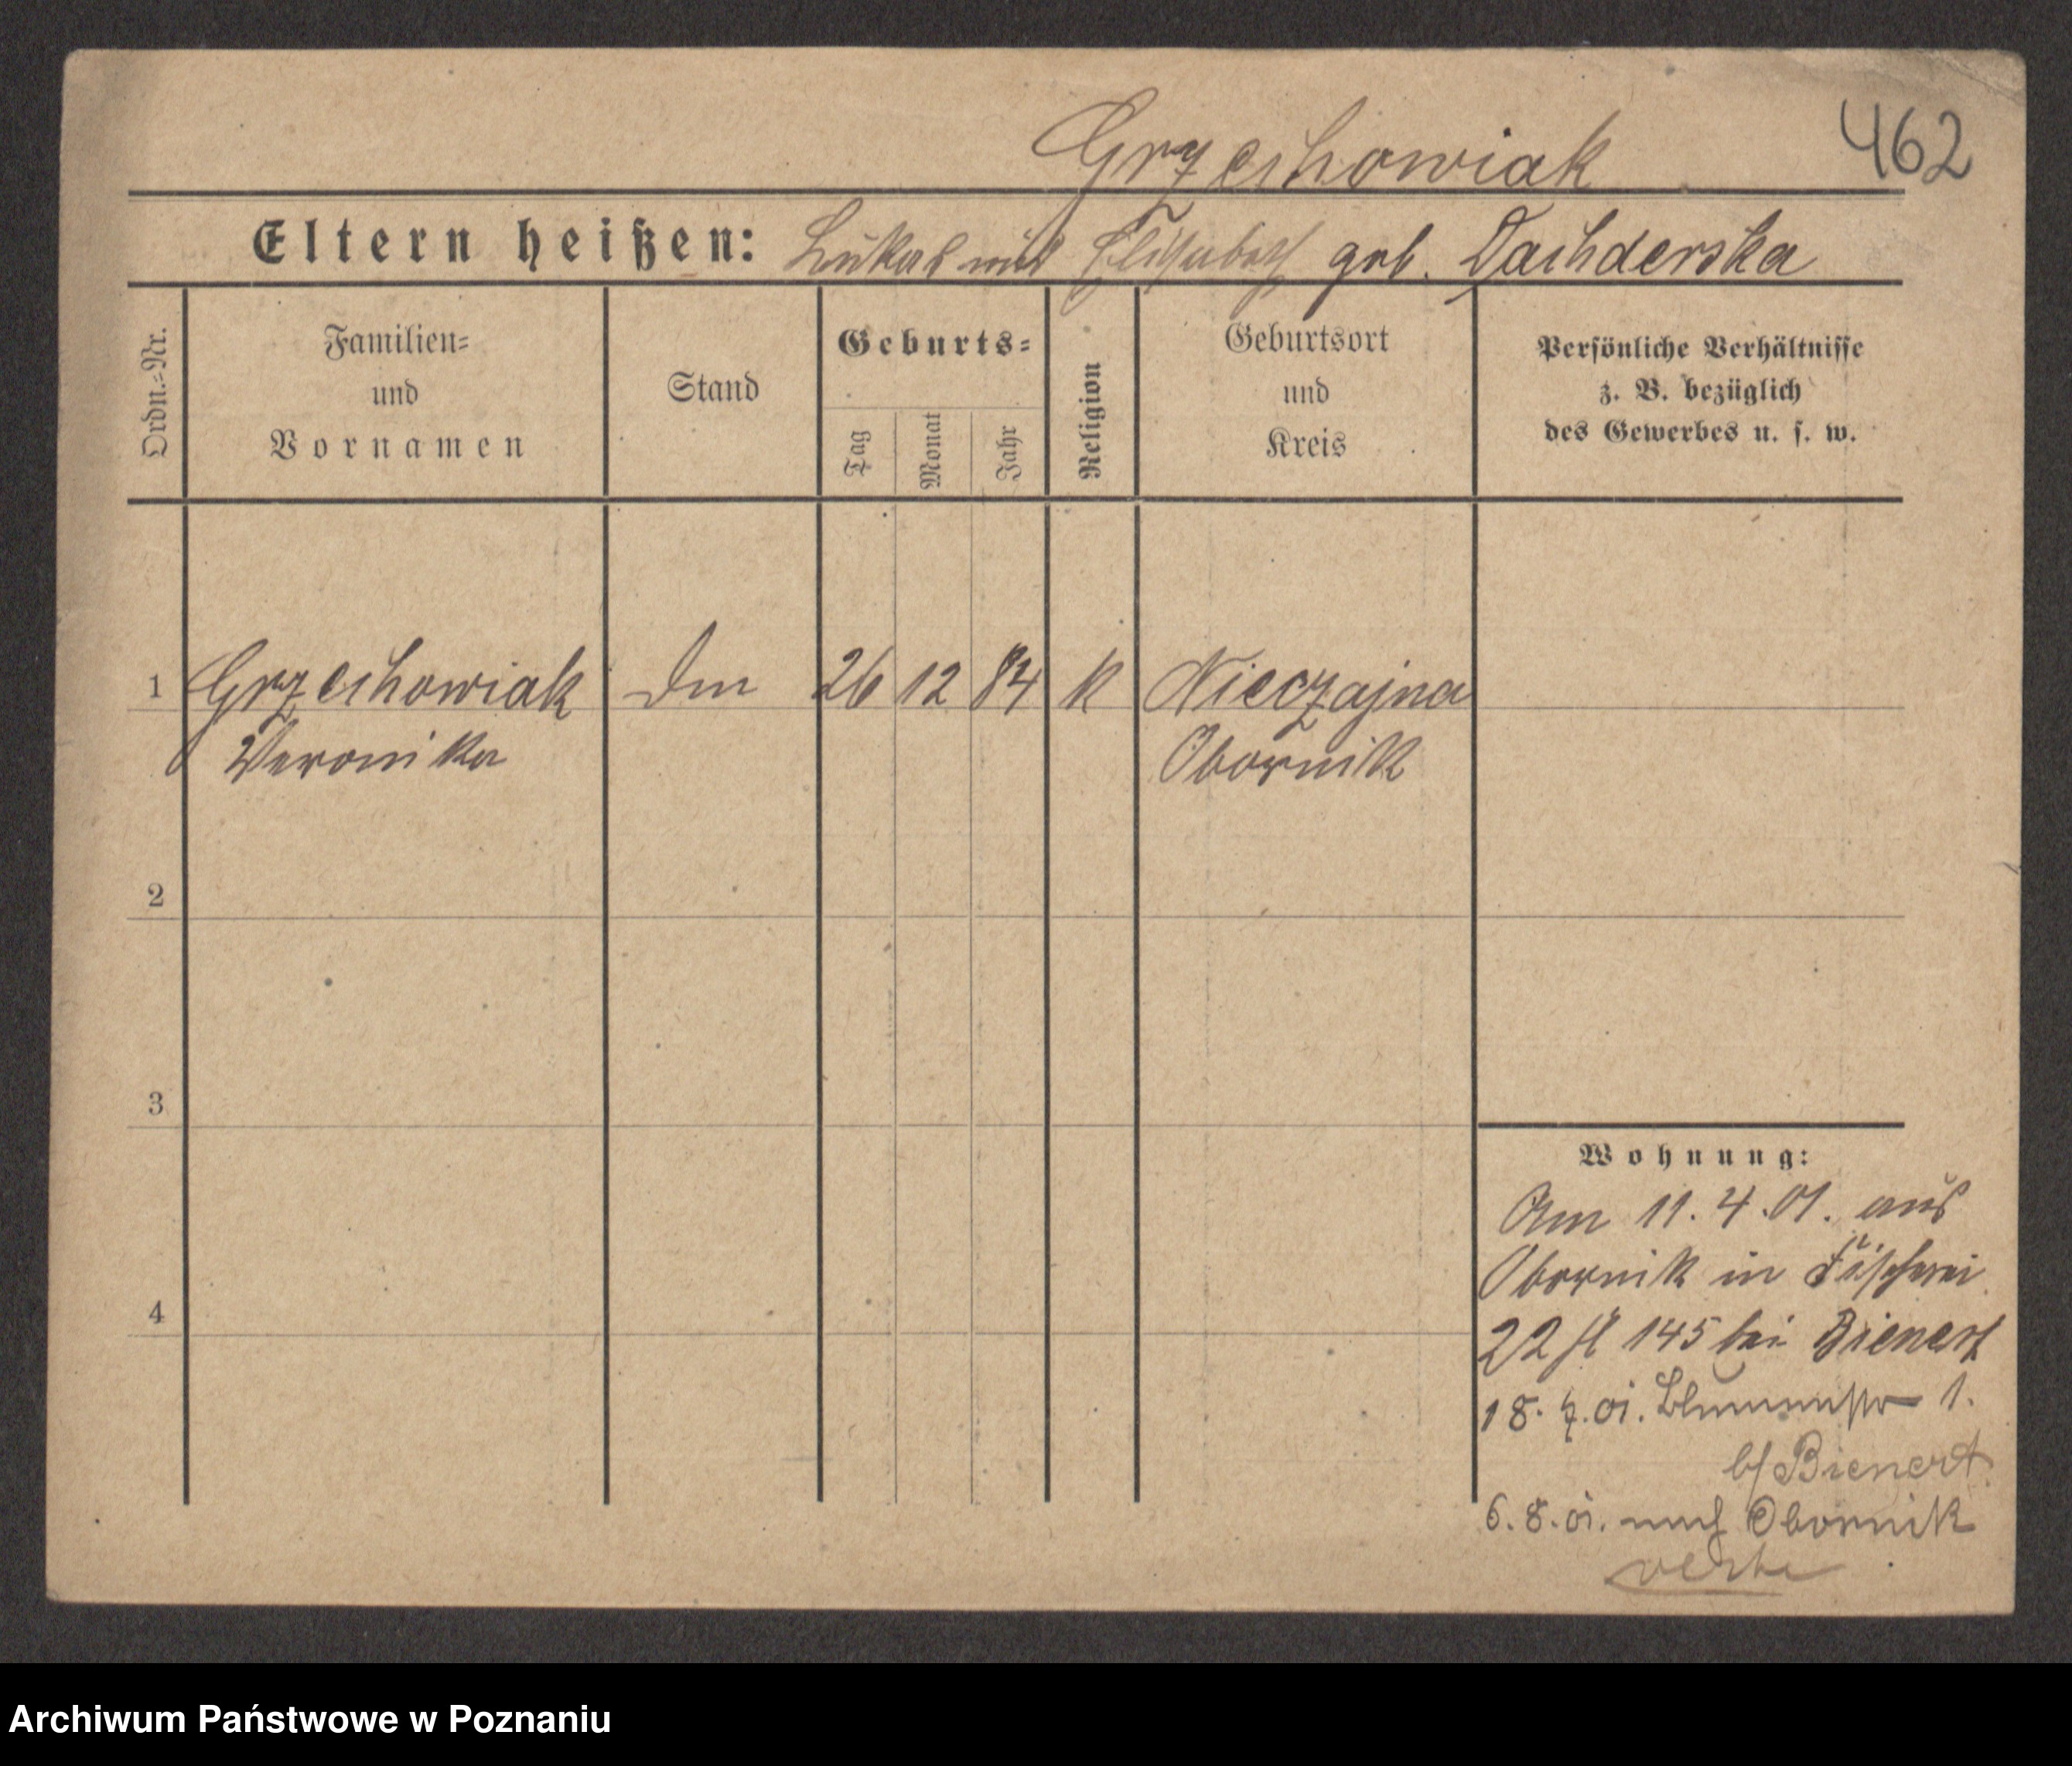 Grzechowiak 462
Eltern heißen: Lukas und Elisabeth geb. Dachderska
Ordn.-Nr.
Familien-
und
Vornamen
Stand
Geburts-
Tag
Monat
Jahr
Religion
Geburtsort
und
Kreis
Persönliche Verhältnisse
z. B. bezüglich
des Gewerbes u. s. w.
1 Grzechowiak 26 12 84 k Nieczajna
Veronika Obornik
2
3
4
Wohnung:
Am 11.4.01. aus
Obornik in Fischerei
22 145 bei Bienert
18. 7. 01. Blumenstr 1.
b/ Bienert
6.8.01. nach Obornik
Archiwum Państwowe w Poznaniu